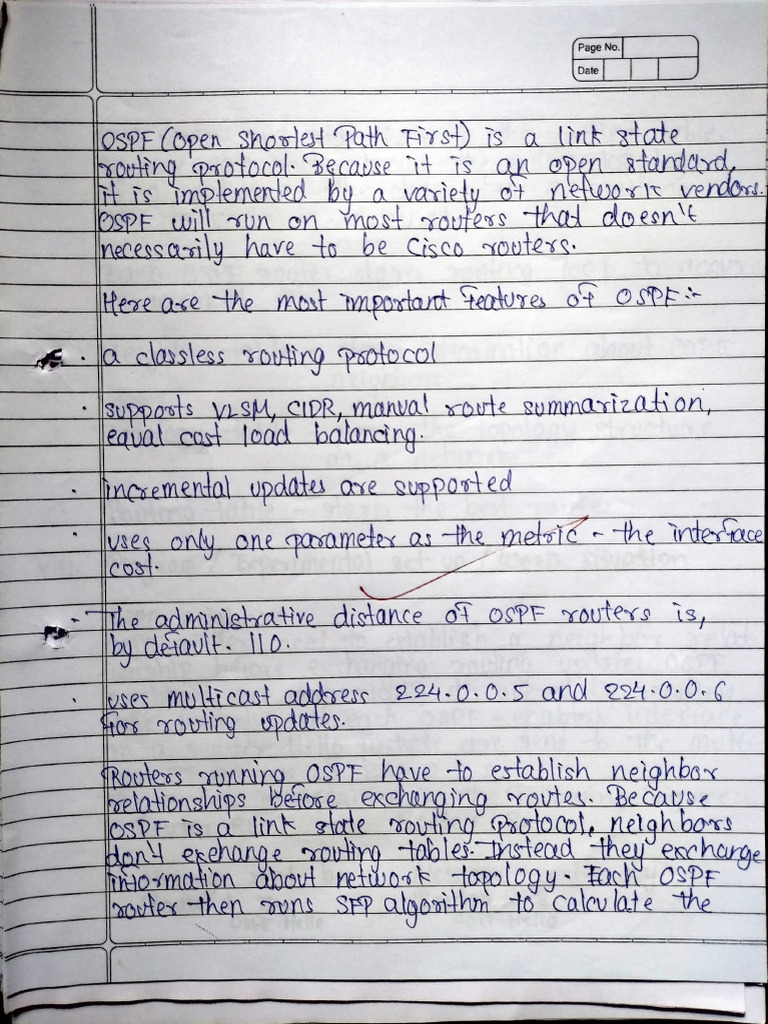 Page No.
Date
OSPF (Open Shortest Path First) is a link state
routing protocol. Because it is an open standard,
it is implemented by a variety of network vendors.
OSPF will run on most routers that doesn't
necessarily have to be Cisco routers.
Here are the most important features of OSPF:-
· a classless routing protocol
· supports VLSM, CIDR, manual route summarization,
equal cost load balancing.
· incremental updates are supported
· uses only one parameter as the metric - the interface
cost.
· The administrative distance of OSPF routers is,
by default. 110.
· uses multicast address 224.0.0.5 and 224.0.0.6
for routing updates.
Routers running OSPF have to establish neighbor
relationships before exchanging routes. Because
OSPF is a link state routing protocol, neighbors
don't exchange routing tables. Instead they exchange
information about network topology. Each OSPF
router then runs SFP algorithm to calculate the